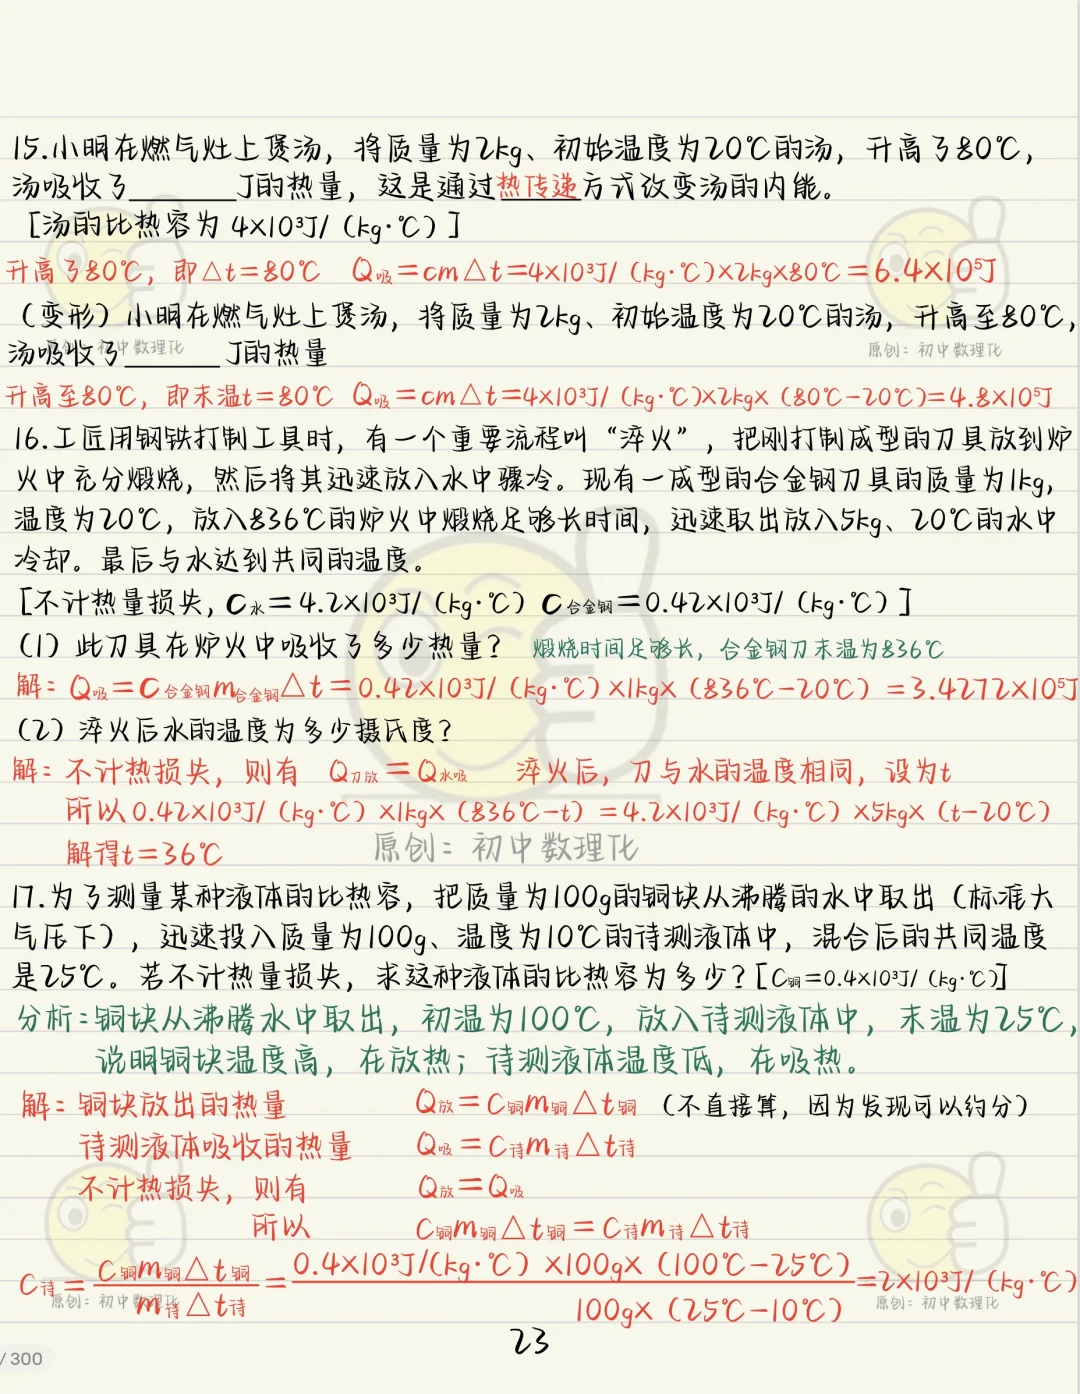 15.小明在燃气灶上煲汤，将质量为2kg、初始温度为20℃的汤，升高了80℃，
汤吸收了______J的热量，这是通过热传递方式改变汤的内能。
[汤的比热容为 4×10³J/（kg·℃）]
升高了80℃，即△t=80℃ Q吸=cm△t=4×10³J/（kg·℃）×2kg×80℃=6.4×10⁵J
（变形）小明在燃气灶上煲汤，将质量为2kg、初始温度为20℃的汤，升高至80℃，
汤吸收了______J的热量
原创：初中数理化
原创：初中数理化
升高至80℃，即末温t=80℃ Q吸=cm△t=4×10³J/（kg·℃）×2kg×（80℃-20℃）=4.8×10⁵J
16.工匠用钢铁打制工具时，有一个重要流程叫“淬火”，把刚打制成型的刀具放到炉
火中充分煅烧，然后将其迅速放入水中骤冷。现有一成型的合金钢刀具的质量为1kg，
温度为20℃，放入836℃的炉火中煅烧足够长时间，迅速取出放入5kg、20℃的水中
冷却。最后与水达到共同的温度。
[不计热量损失，C水=4.2×10³J/（kg·℃）C合金钢=0.42×10³J/（kg·℃）]
（1）此刀具在炉火中吸收了多少热量？ 煅烧时间足够长，合金钢刀末温为836℃
解：Q吸=C合金钢m合金钢△t=0.42×10³J/（kg·℃）×1kg×（836℃-20℃）=3.4272×10⁵J
（2）淬火后水的温度为多少摄氏度？
解：不计热损失，则有 Q刀放=Q水吸 淬火后，刀与水的温度相同，设为t
所以0.42×10³J/（kg·℃）×1kg×（836℃-t）=4.2×10³J/（kg·℃）×5kg×（t-20℃）
解得t=36℃
原创：初中数理化
17.为了测量某种液体的比热容，把质量为100g的铜块从沸腾的水中取出（标准大
气压下），迅速投入质量为100g、温度为10℃的待测液体中，混合后的共同温度
是25℃。若不计热量损失，求这种液体的比热容为多少？[C铜=0.4×10³J/（kg·℃）]
分析：铜块从沸腾水中取出，初温为100℃，放入待测液体中，末温为25℃，
说明铜块温度高，在放热；待测液体温度低，在吸热。
解：铜块放出的热量 Q放=C铜m铜△t铜（不直接算，因为发现可以约分）
待测液体吸收的热量 Q吸=C待m待△t待
不计热损失，则有 Q放=Q吸
所以 C铜m铜△t铜=C待m待△t待
C待=C铜m铜△t铜/m待△t待=0.4×10³J/(kg·℃）×100g×（100℃-25℃）/100g×（25℃-10℃）=2×10³J/（kg·℃）
原创：初中数理化
原创：初中数理化
23
/300